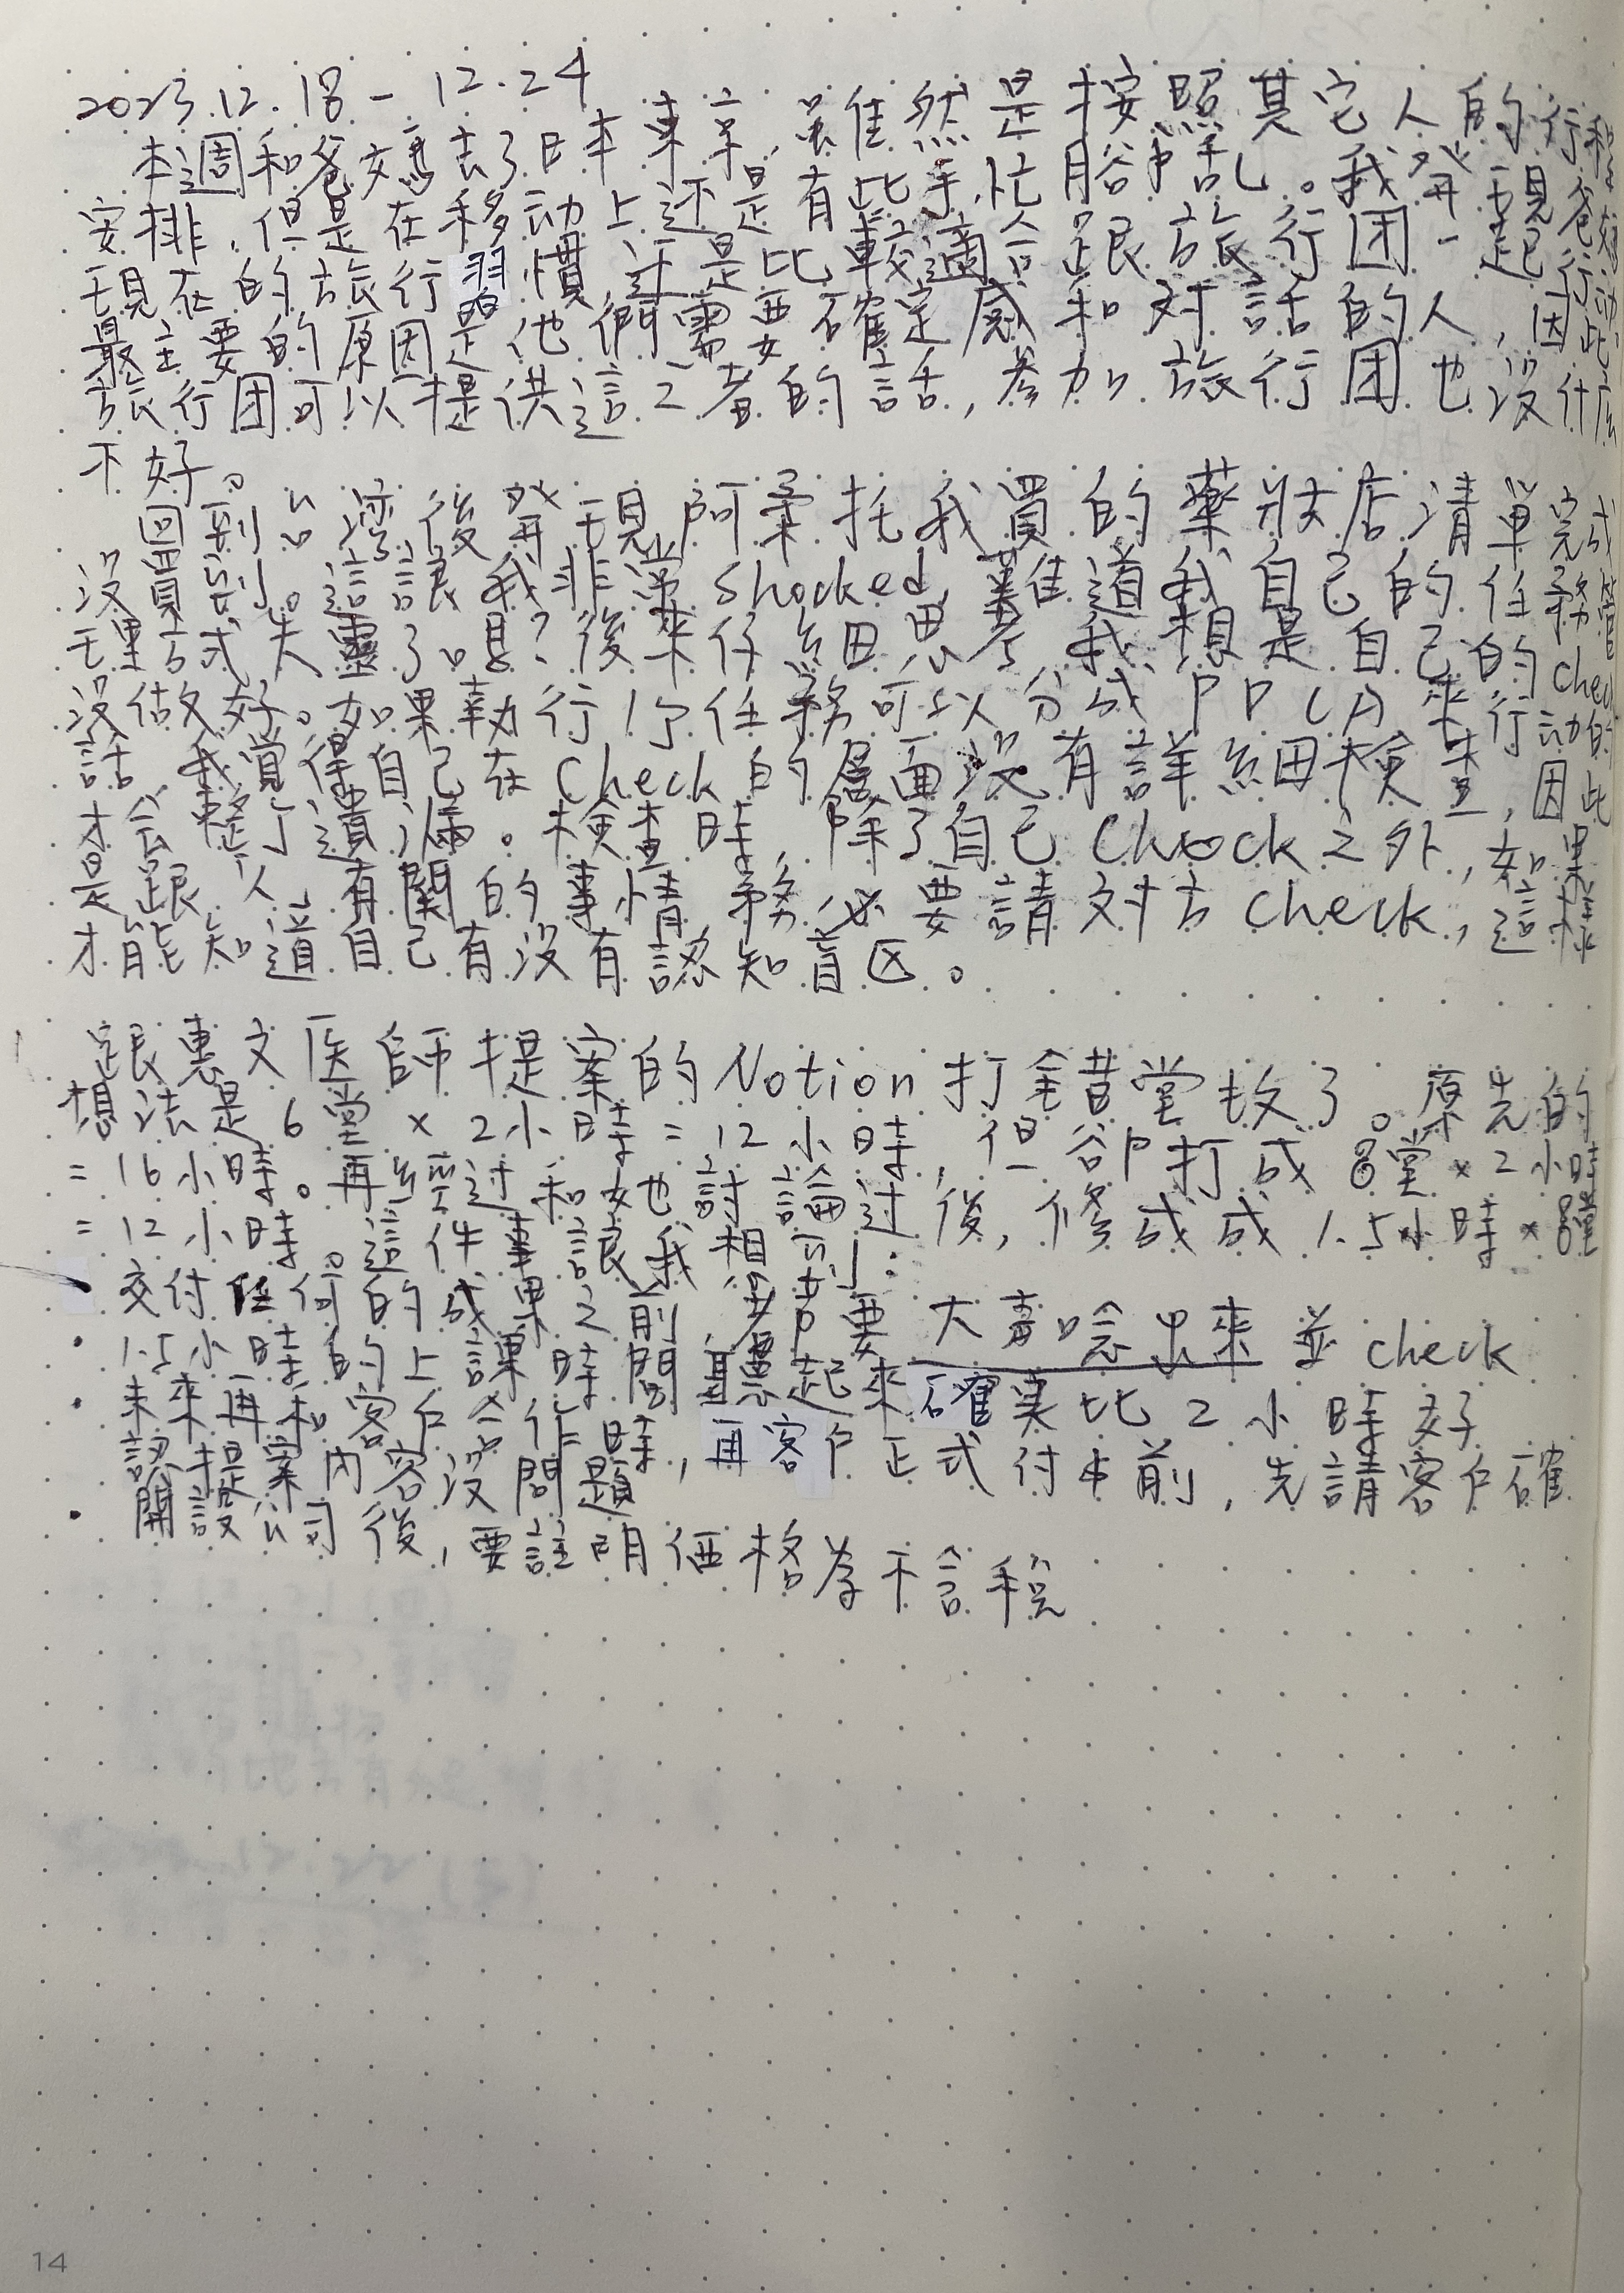 2023.12.18 - 12.24
本週和爸媽去了日本東京,雖然是按照其它人的行程
安排,但是在移動上还是有比手忙腳乱。我發現爸媽
現在的旅行習慣,还是比較適合跟旅行团一起行动
最主要的原因是他們需要確定感和対話的人,因此
旅行团可以提供這2者的話,參加旅行团也沒什麼
不好。
回到台灣後發現阿柔托我買的藥妝店清單完成
沒買到。這讓我非常shocked,難道我自己的任務管
理方式失靈了嗎?後來仔細思考,我想是自己的check
沒做好。如果執行1个任務可以分成PDCA來行动的
話,我覺得自己在check的層面沒有詳細檢查,因此
才会整个遺漏。檢查時,除了自己check之外,如果
是跟人有關的事情,務必要請対方check,這樣
才能知道自己有沒有認知盲区。
跟惠文医師提案的Notion打錯堂数了。原先的
想法是6堂×2小時=12小時,但卻打成8堂×2小時
=16小時。再經过和她討論过後,修成成1.5小時×8堂
=12小時。這件事讓我想到:
交付任何的成果之前,要大声唸出來並check
1.5小時的上課時間,聽起來確实比2小時好
未來再和客户合作時,再客户正式付申前,先請客户確
認提案內容沒問題
開設公司後,要註明価格為不含税
14